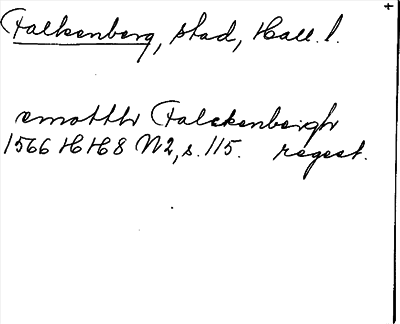 Falkenberg, stad, Hall. l.
emotthr Falckenbergh
1566 HH8 N2, s. 115. regest.